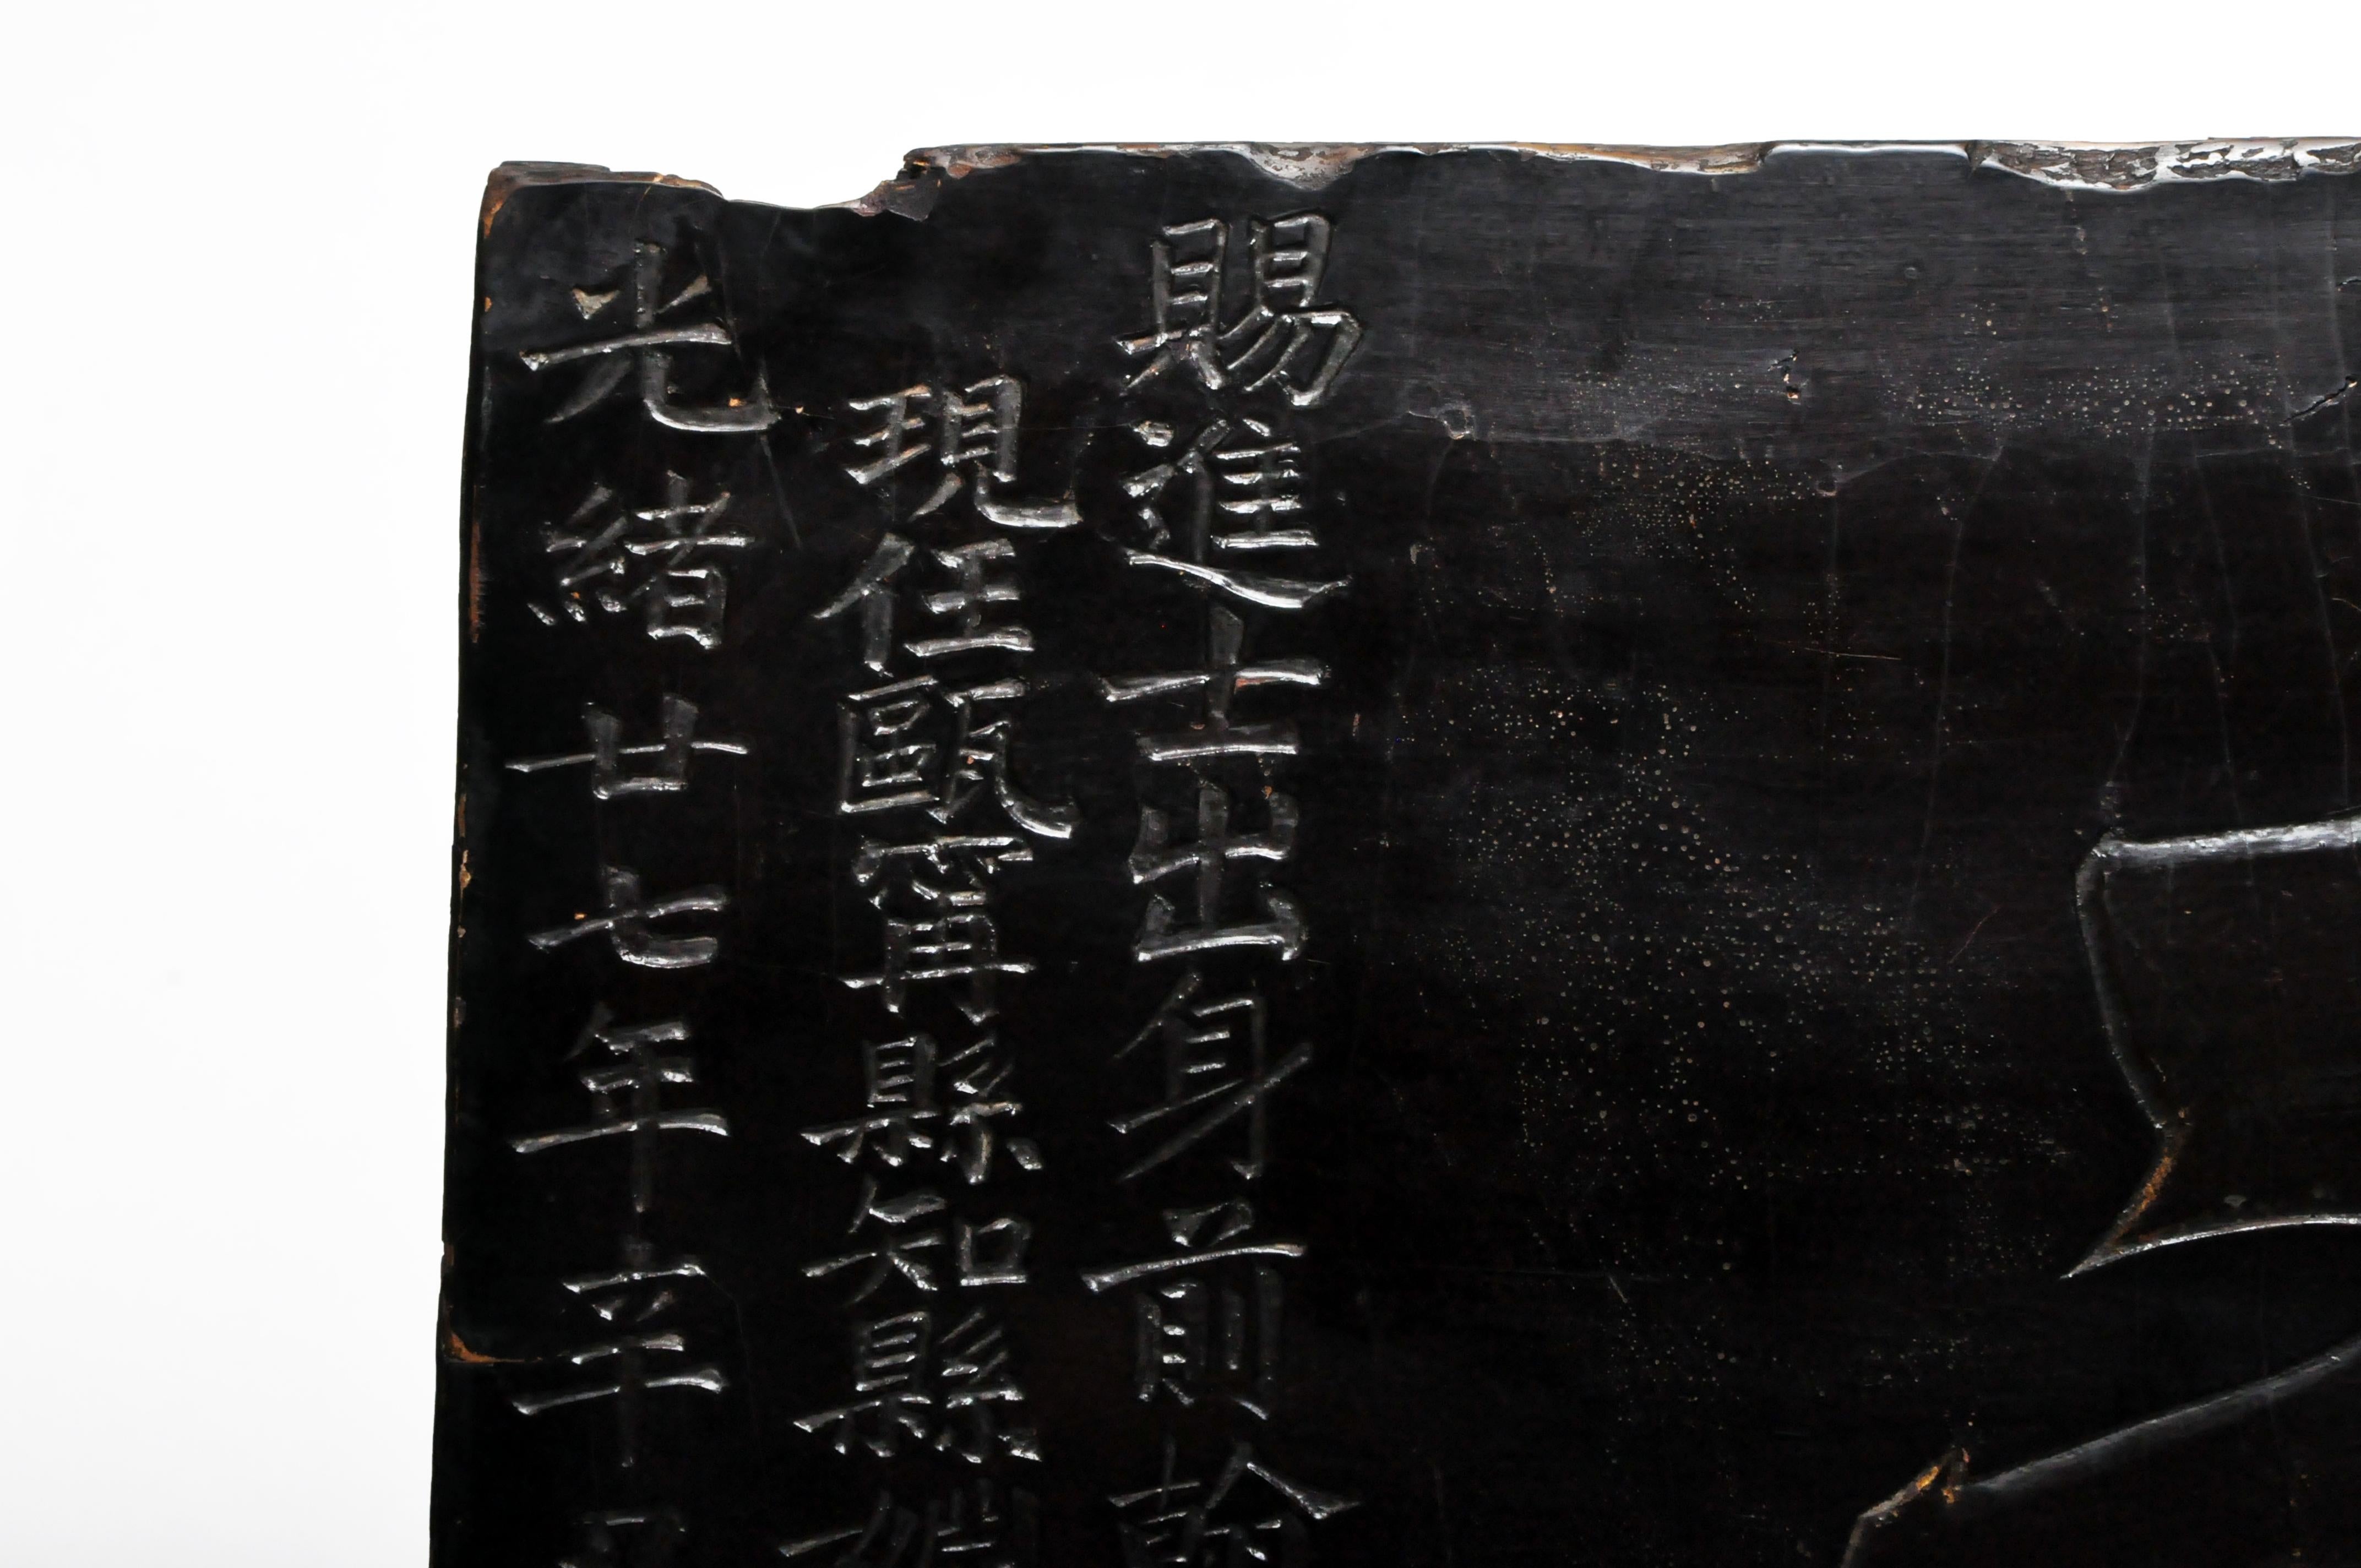 賜進士出身前翰
現任甌甯縣知縣
光緒廿七年辛